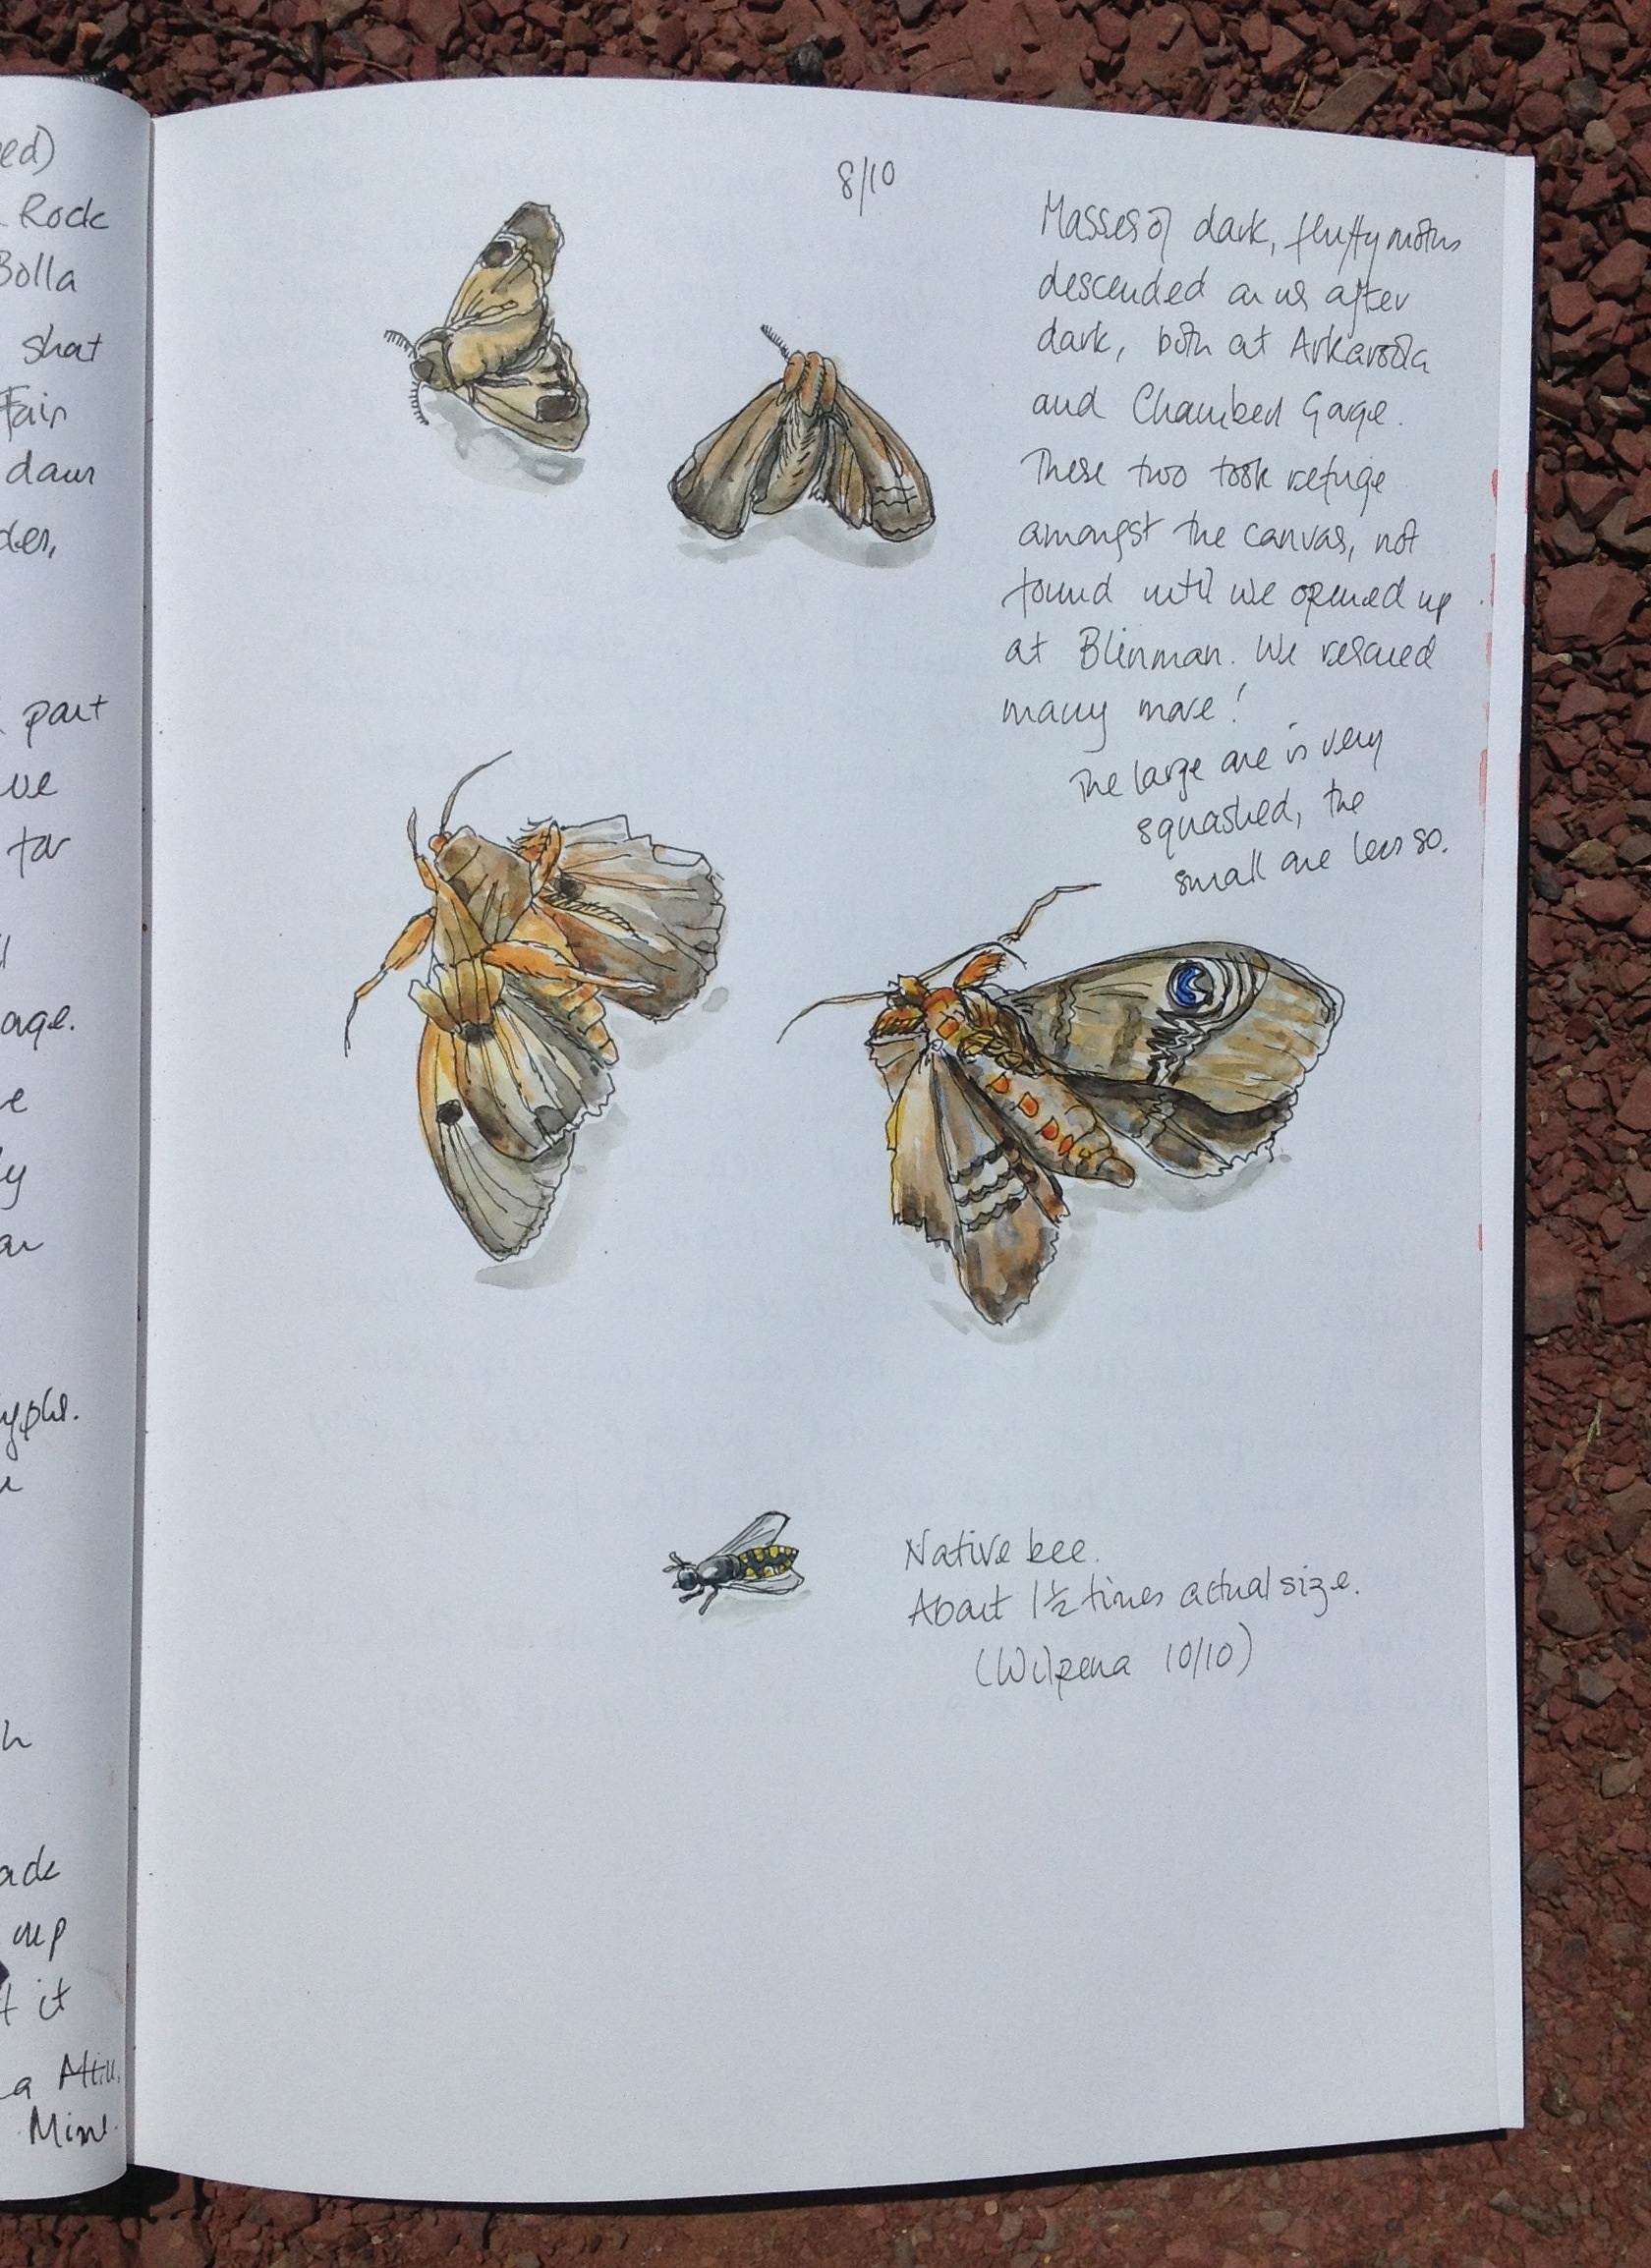 ed)
Rock
Bolla
shat
Fair
dawn
der,
part
we
for
age.
e
ly
an
yphs.
h
ack
up
it
a Attu.
Mine.
8/10
Masses of dark, fluffy moths
descended on us after
dark, both at Arkaroola
and Chambers Gorge.
These two took refuge
amongst the canvas, not
found until we opened up
at Blinman. We rescued
many more!
The large one is very
squashed, the
small one less so.
Native bee.
About 1½ times actual size.
(Wilpena 10/10)